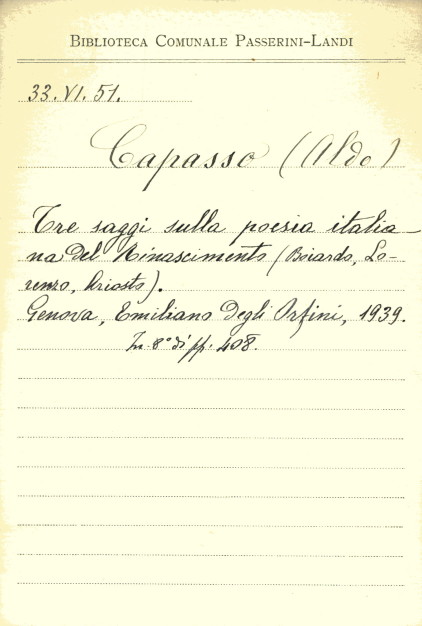 BIBLIOTECA COMUNALE PASSERINI-LANDI
33. VI. 51.
Capasso (Aldo)
Tre saggi sulla poesia italia-
na del Rinascimento (Boiardo, Lo-
renzo, Ariosto).
Genova, Emiliano degli Orfini, 1939.
In 8° di pp. 408.